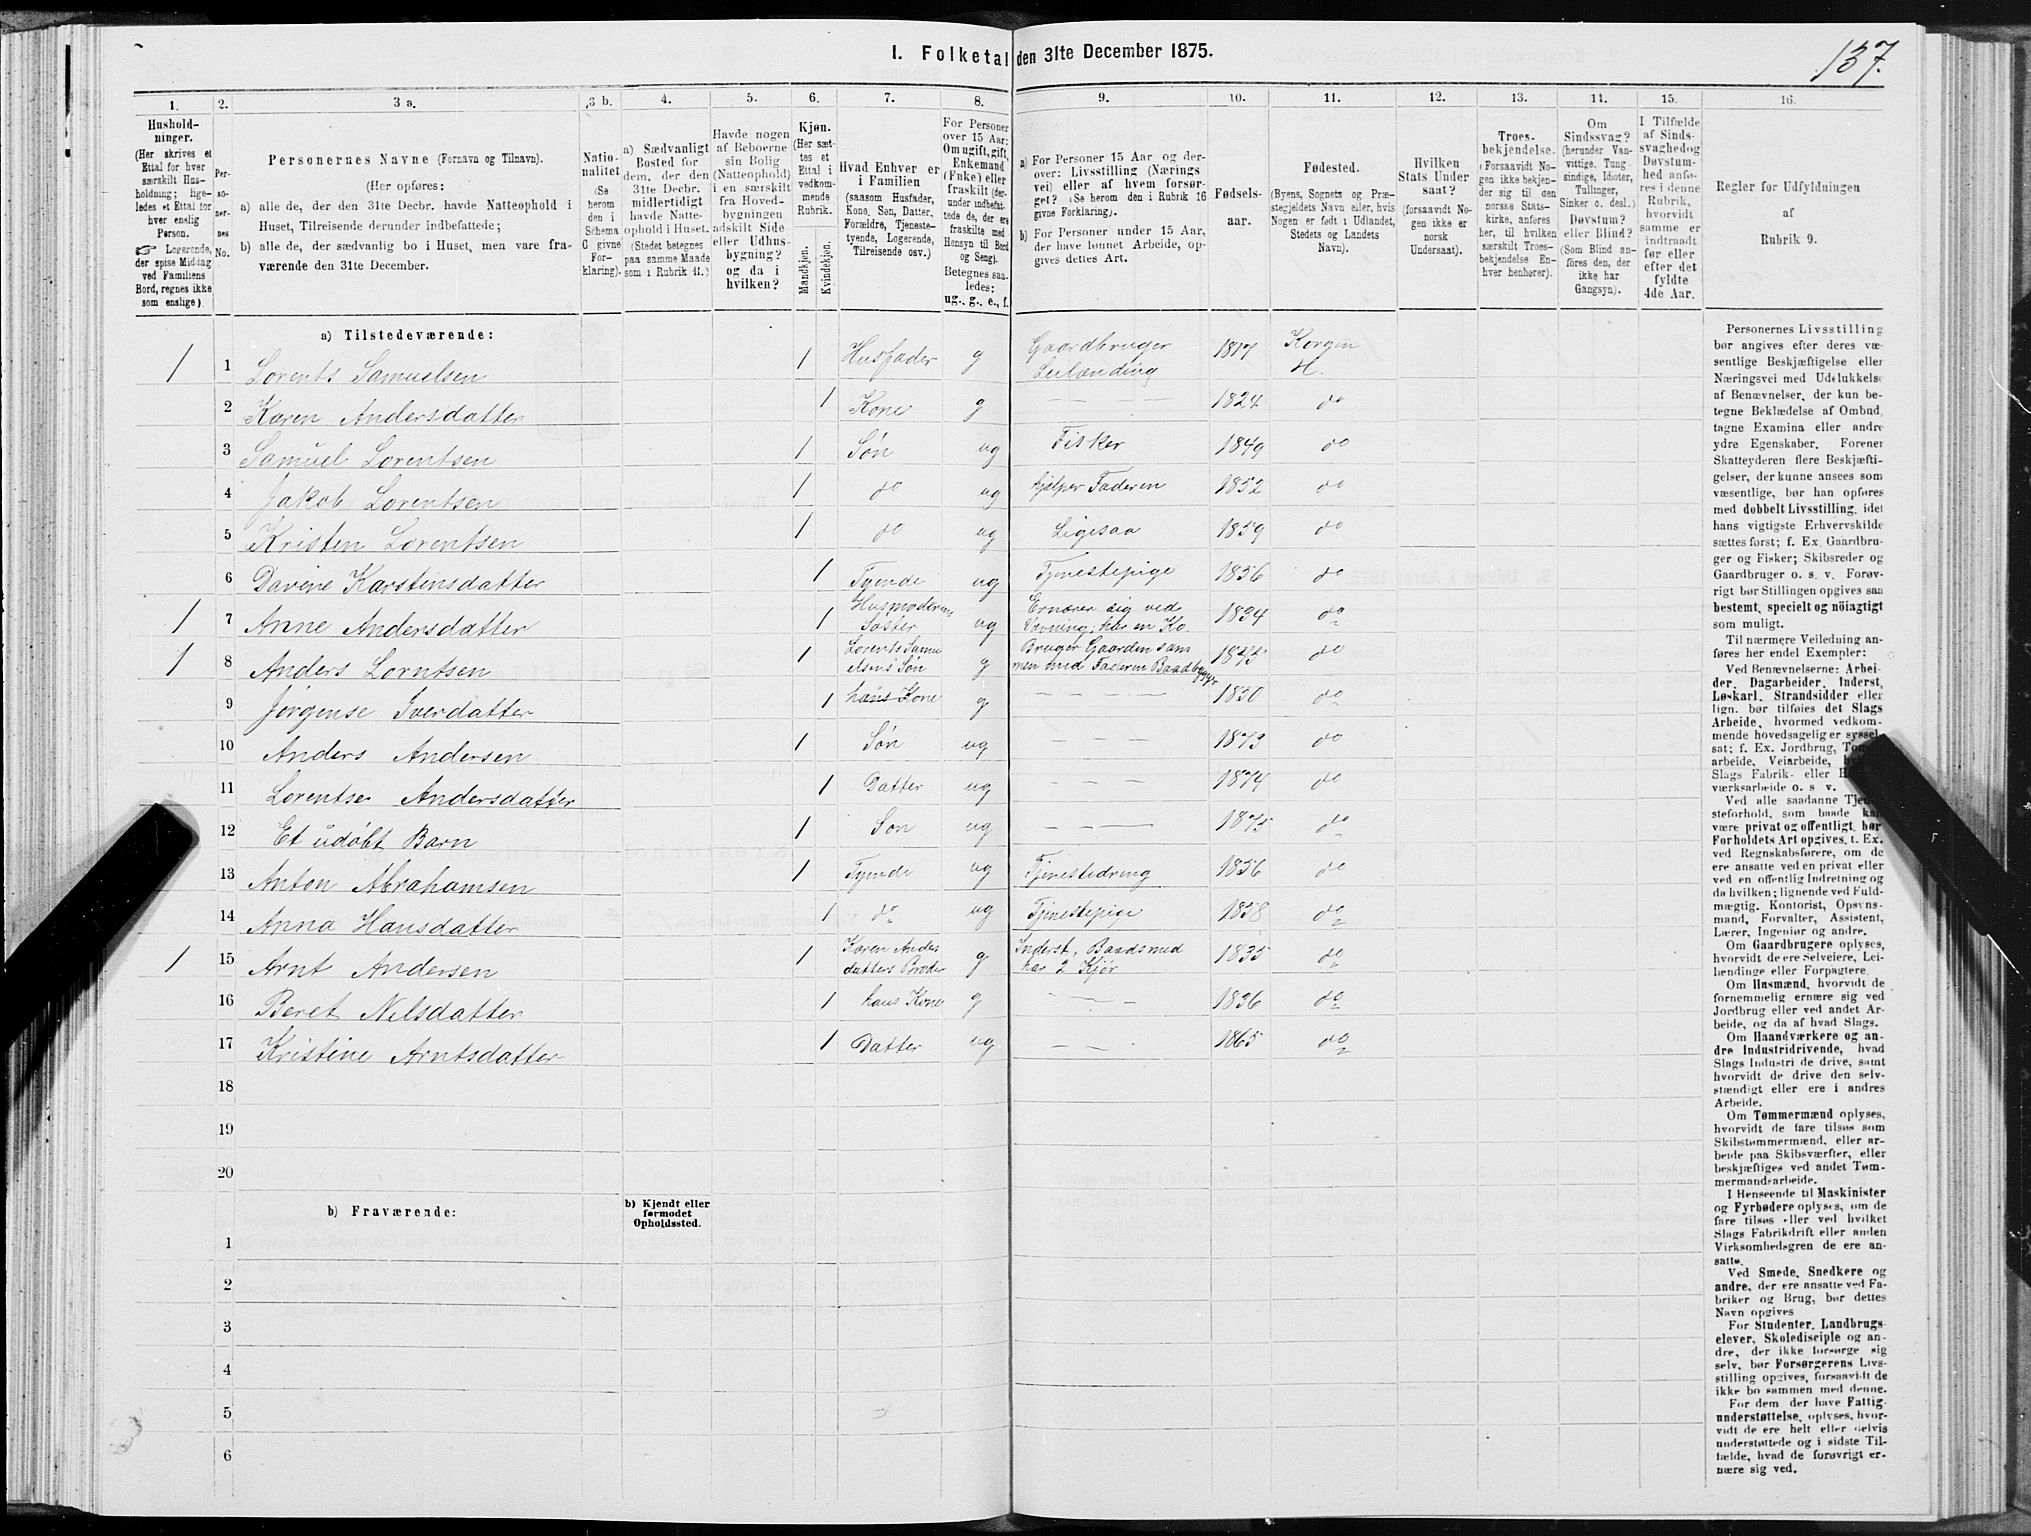 137.
I. Folketal den 31te December 1875.
1. 2. 3 a. 3 b. 4. 5. 6. 7. 8. 9. 10. 11. 12. 13. 14. 15. 16.
Hushold-
ninger.
(Her skrives et
Ettal for hver
særskilt Hus-
holdning; lige-
ledes et Ettal for
hver enslig
Person.
☞ Logerende,
der spise Middag
ved Familiens
Bord, regnes ikke
som enslige).
Per-
so-
ner-
nes
No.
Personernes Navne (Fornavn og Tilnavn).
(Her opføres:
a) alle de, der den 31te Decbr. havde Natteophold i
Huset, Tilreisende derunder indbefattede;
b) alle de, der sædvanlig bo i Huset, men vare fra-
værende den 31te December.
Natio-
nalitet
(Se
herom
den i
Schema
C givne
For-
klaring).
a) Sædvanligt
Bosted for
dem, der den
31te Decbr.
midlertidigt
havde Natte-
ophold i Huset.
(Stedet betegnes
paa samme Maade
som i Rubrik 11.)
Havde nogen
af Beboerne
sin Bolig
(Natteophold)
i en særskilt
fra Hoved-
bygningen
adskilt Side-
eller Udhus-
bygning?
og da i
hvilken?
Kjøn.
(Her sæt-
tes et
Ettal i
vedkom-
mende
Rubrik.
Mandkjøn.
Kvindekjøn.
Hvad Enhver er
i Familien
(saasom Husfader,
Kone, Søn, Datter,
Forældre, Tjeneste-
tyende, Logerende,
Tilreisende osv.)
For Personer
over 15 Aar:
Om ugift, gift,
Enkemand
(Enke) eller
fraskilt (der-
under indbefat-
tede de, der ere
fraskilte med
Hensyn til Bord
og Seng).
Betegnes saa-
ledes:
ug., g., e., f.
a) For Personer 15 Aar og der-
over: Livsstilling (Nærings
vei) eller af hvem forsør-
get? (Se herom den i Rubrik 16
givne Forklaring.)
b) For Personer under 15 Aar,
der have lønnet Arbeide, op-
gives dettes Art.
Fødsels-
aar.
Fødested.
(Byens, Sognets og Præ-
stegjeldets Navn eller, hvis
Nogen er født i Udlandet,
Stedets og Landets
Navn).
Hvilken
Stats Under
saat?
(forsaavidt No-
gen ikke er
norsk
Undersaat).
Troes-
bekjendelse.
(Forsaavidt No-
gen ikke bekjen-
der sig til den
norske Stats-
kirke, anføres
her, til hvilken
særskilt Troes-
bekjendelse En-
hver henhører).
Om
Sindssvag?
(herunder Van-
vittige, Tung-
sindige, Idioter,
Tullinger,
Sinker o. desl.)
Døvstum?
eller Blind?
(Som Blind an-
føres den, der
ikke har
Gangsyn).
I Tilfælde
af Sinds-
svaghed og
Døvstum-
hed anfø-
res i denne
Rubrik,
hvorvidt
samme er
indtraadt
før eller
efter det
fyldte
4de Aar.
Regler for Udfyldningen
af
Rubrik 9.
a) Tilstedeværende:
1 1 Lorents Samuelsen 1 Husfader g Gaardbruger Leilænding 1817 Korgen H.
2 Karen Andersdatter 1 Kone g — — — 1824 do
3 Samuel Lorentsen 1 Søn ug Fisker 1849 do
4 Jakob Lorentsen 1 do ug hjelper Faderen 1852 do
5 Kristen Lorentsen 1 do ug Ligesaa 1859 do
6 Davine Karstensdatter 1 Tyende ug Tjenestepige 1856 do
1 7 Anne Andersdatter 1 Husmoderens Søster ug Ernærer sig ved Vævning; har en Ko. 1834 do
1 8 Anders Lorntsen 1 Lorents Samuelsens Søn g Bruger Gaarden sammen med Faderen Baadbygger 1845 do
9 Jørgense Iverdatter 1 hans Kone g — — — 1830 do
10 Anders Andersen 1 Søn ug — — 1873 do
11 Lorentse Andersdatter 1 Datter ug — — 1874 do
12 Et udøbt Barn 1 Søn ug — — 1875 do
13 Anton Abrahamsen 1 Tyende ug Tjenestedreng 1856 do
14 Anna Hansdatter 1 do ug Tjenestepige 1858 do
1 15 Arnt Andersen 1 Karen Andersdatters Broder g Inderst, Baadsmed har 2 Kjør 1835 do
16 Beret Nilsdatter 1 hans Kone g — — 1836 do
17 Kristine Arntsdatter 1 Datter ug — — 1865 do
18
19
20
b) Fraværende:
b) Kjendt eller
formodet
Opholdssted.
1
2
3
4
5
6
Personernes Livsstilling
bør angives efter deres væ-
sentlige Beskjæftigelse eller
Næringsvei med Udelukkelse
af Benævnelser, der kun be-
tegne Beklædelse af Ombud,
tagne Examina eller andre
ydre Egenskaber. Forener
Skatteyderen flere Beskjæfti-
gelser, der kunne ansees som
væsentlige, bør han opføres
med dobbelt Livsstilling, idet
hans vigtigste Erhvervskilde
sættes først; f. Ex. Gaardbru-
ger og Fisker; Skibsreder og
Gaardbruger o. s. v. Forøv-
rigt bør Stillingen opgives saa
bestemt, specielt og nöiagtigt
som muligt.
Til nærmere Veiledning an-
føres her endel Exempler:
Ved Benævnelserne: Arbei-
der, Dagarbeider, Inderst,
Løskarl, Strandsidder eller
lign. bør tilføies det Slags
Arbeide, hvormed vedkom-
mende hovedsagelig er syssel-
sat; f. Ex. Jordbrug, Tom
arbeide, Veiarbeide, h
Slags Fabrik- eller H
værksarbeide o. s v.
Ved alle saadanne Tjen
steforhold, som baade ka
være privat og offentligt, bør
Forholdets Art opgives, t. Ex.
ved Regnskabsførere, om de
ere ansatte ved en privat eller
ved en offentlig Indretning og
da hvilken; lignende ved Fuld-
mægtig, Kontorist, Opsyns-
mand, Forvalter, Assistent,
Lærer, Ingeniør og andre.
Om Gaardbrugere oplyses,
hvorvidt de ere Selveiere, Lei-
lændinge eller Forpagtere.
Om Husmænd, hvorvidt de
fornemmelig ernære sig ved
Jordbrug eller ved andet Ar-
beide, og da af hvad Slags.
Om Haandværkere og an-
dre Industridrivende, hvad
Slags Industri de drive, samt
hvorvidt de drive den selv-
stændigt eller ere i andres
Arbeide.
Om Tømmermænd oplyses,
hvorvidt de fare tilsøs som
Skibstømmermænd, eller ar-
beide paa Skibsværfter, eller
beskjæftiges ved andet Tøm-
mermandsarbeide.
I Henseende til Maskinister
og Fyrbødere oplyses, om de
fare tilsøs eller ved hvilket
Slags Fabrikdrift eller anden
Virksomhedsgren de ere an-
satte.
Ved Smede, Snedkere og
andre, der ere ansatte ved Fa-
briker og Brug, bør dettes
Navn opgives
For Studenter, Landbrugs-
elever, Skoledisciple og an-
dre, der ikke forsørge sig
selv, bør Forsørgerens Livs-
stilling opgives, forsaavidt de
ikke bo sammen med denne.
For dem, der have Fattig-
understøttelse, oplyses, hvor-
vidt de ere helt eller delvis
understøttede og i sidste Til-
fælde, hvad de forøvrigt er-
nære sig ved.